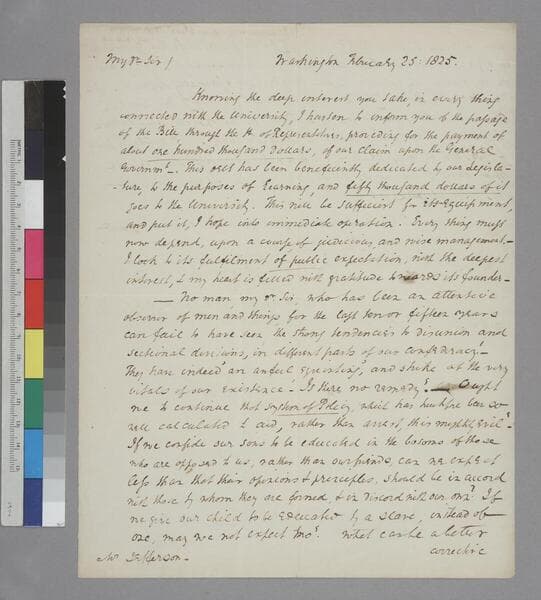 My Dr Sir / Washington February 25: 1825.
Knowing the deep interest you take, in every thing
connected with the University, I hasten to inform you of the passage
of the Bill through the H. of Representatives, providing for the payment of
about one hundred thousand dollars, of our claim upon the General
Governmt.— This debt has been beneficently dedicated by our Legisla-
-ture to the purposes of learning, and fifty thousand dollars of it
goes to the University. This will be sufficient for its Equipment,
and put it, I hope into immediate operation. Every thing must
now depend, upon a course of judicious, and wise management—
I look to its fulfilment of public expectation, with the deepest
interest, & my heart is filled with gratitude towards its founder—
— No man my Dr Sir, who has been an attentive
observer of men and things for the last ten or fifteen years
can fail to have seen the strong tendencies to disunion and
sectional divisions, in different parts of our confederacy!
They have indeed an awful squinting, and strike at the very
vitals of our existence— Is there no remedy? — Ought
we to continue that system of Policy, which has heretofore been so
well calculated to aid, rather than arrest, this mighty Evil?
If we confide our sons to be educated in the bosoms of those
who are opposed to us, rather than our friends, can we expect
less than that their opinions & principles, should be in accord
with those by whom they are formed, & in discord with our own? If
we give our child to be educated by a slave, instead of
one, may we not expect two? What can be a better
Mr Jefferson— corrective